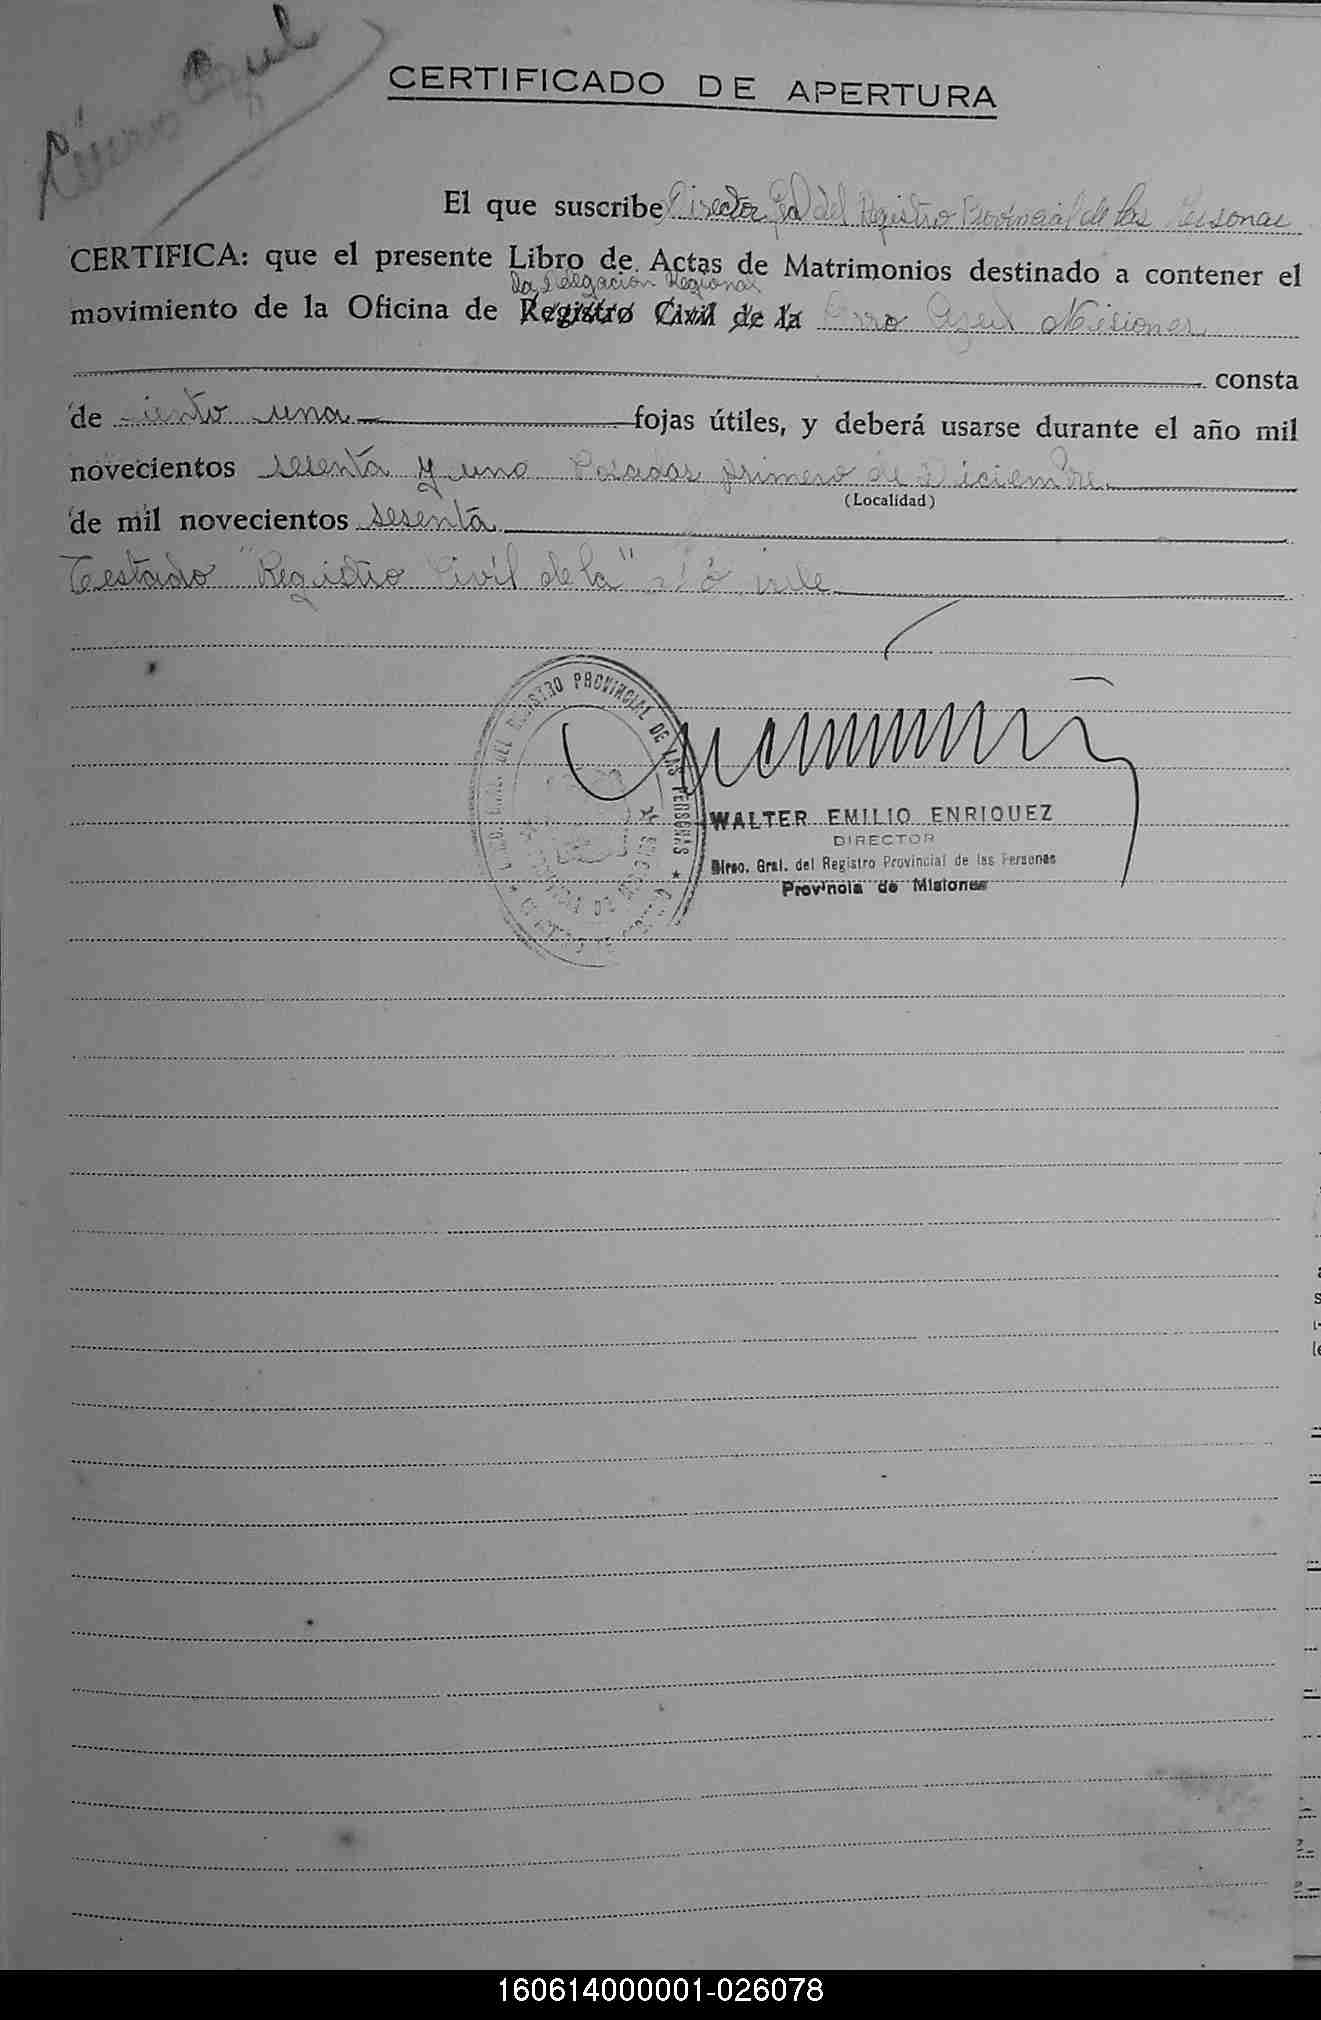 Azul
CERTIFICADO DE APERTURA
El que suscribe Director Gral del Registro Provincial de las Personas
CERTIFICA: que el presente Libro de Actas de Matrimonios destinado a contener el
la Delegación Regional
movimiento de la Oficina de Registro Civil de la Cerro Azul Misiones
consta
de ciento una fojas útiles, y deberá usarse durante el año mil
novecientos sesenta y uno Posadas primero de Diciembre
(Localidad)
de mil novecientos sesenta
Testado "Registro Civil de la" vale
REGISTRO PROVINCIAL DE LAS PERSONAS
WALTER EMILIO ENRIQUEZ
DIRECTOR
Direc. Gral. del Registro Provincial de las Personas
Provincia de Misiones
160614000001-026078